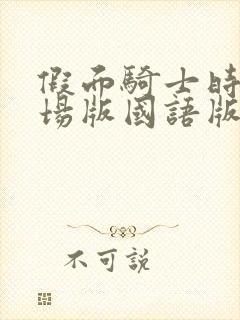 假面騎士時
場版國語版
不可説